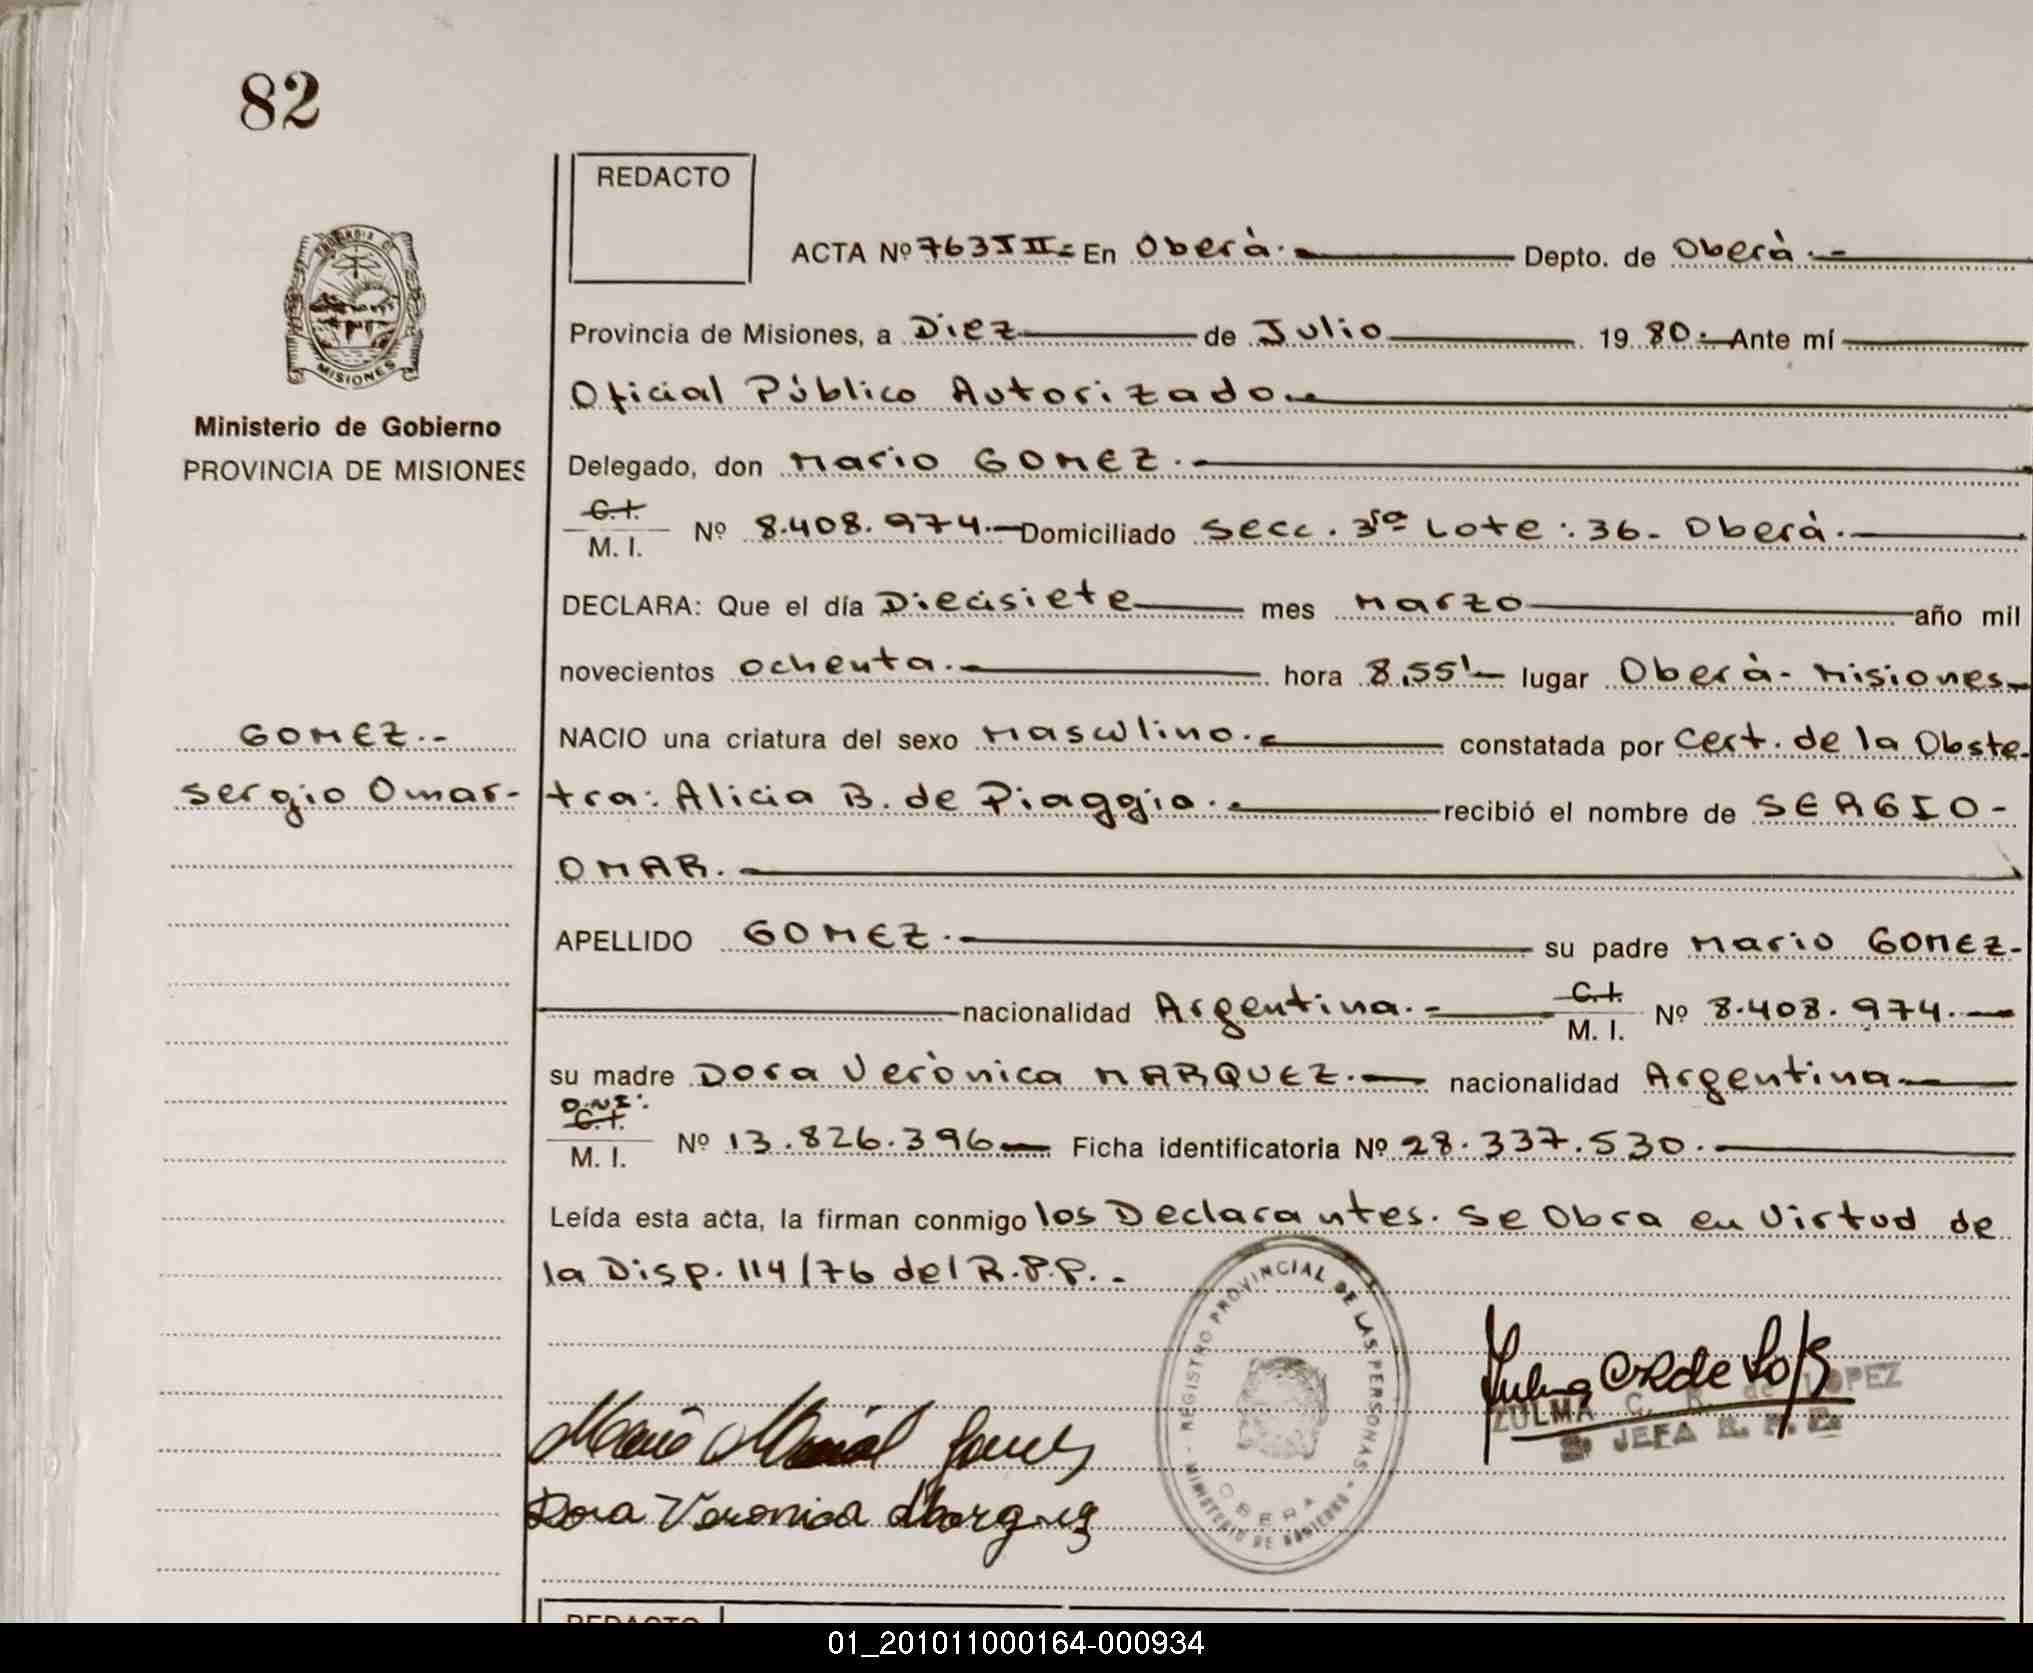 82
REDACTO
ACTA Nº 763J II= En Oberà.- Depto. de Oberà.-
Provincia de Misiones, a Diez de Julio 1980.- Ante mí
Oficial Público Autorizado.-
Ministerio de Gobierno
PROVINCIA DE MISIONES
Delegado, don Mario GOMEZ.-
C.I.
M. I. Nº 8.408.974.- Domiciliado Secc. 3ra Lote: 36- Oberá.-
DECLARA: Que el día Diecisiete mes Marzo año mil
novecientos ochenta.- hora 8,55'- lugar Oberà- Misiones-
GOMEZ.-
NACIO una criatura del sexo Masculino.- constatada por Cert. de la Obste-
Sergio Omar-
tra: Alicia B. de Piaggio.- recibió el nombre de SERGIO-
OMAR.-
APELLIDO GOMEZ.- su padre Mario GOMEZ-
nacionalidad Argentina.- C.I.
M. I. Nº 8.408.974.-
su madre Dora Verònica MARQUEZ.- nacionalidad Argentina-
D.N.I.
C.I.
M. I. Nº 13.826.396- Ficha identificatoria Nº 28.337.530.-
Leída esta acta, la firman conmigo los Declarantes. Se Obra en Virtud de
la Disp. 114/76 del R.P.P..-
REGISTRO PROVINCIAL DE LAS PERSONAS
MINISTERIO DE GOBIERNO
OBERA
ZULMA C. R. de LOPEZ
JEFA R. P. P.
Dora Veronica Marquez
REDACTO
01_201011000164-000934